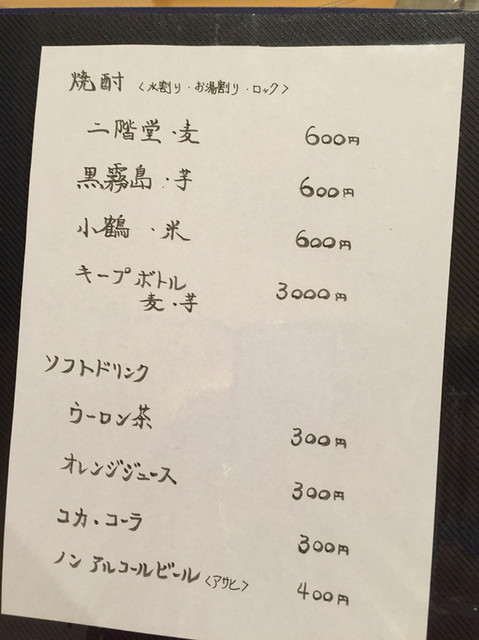 焼酎 〈水割り・お湯割り・ロック〉
二階堂・麦 600円
黒霧島・芋 600円
小鶴・米 600円
キープボトル
麦・芋 3000円
ソフトドリンク
ウーロン茶 300円
オレンジジュース 300円
コカ・コーラ 300円
ノンアルコールビール〈アサヒ〉 400円